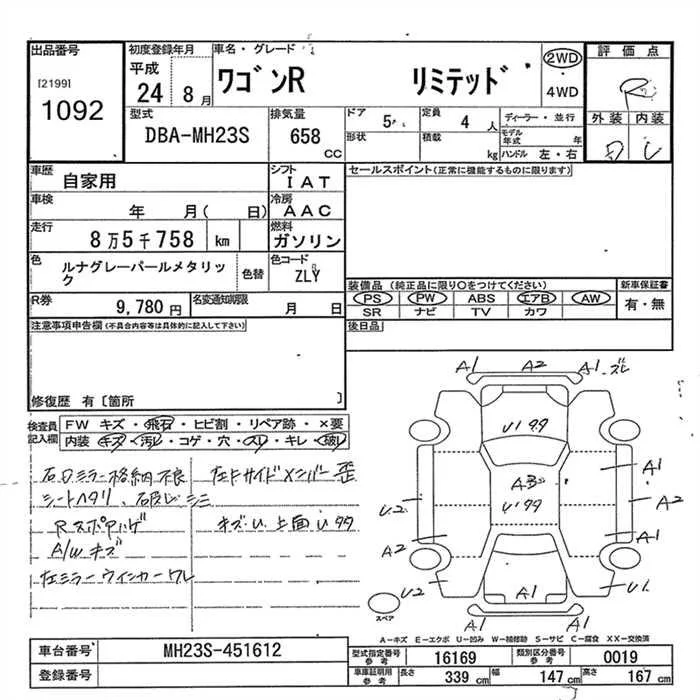 出品番号
[2199]
1092
初度登録年月
平成
24 8月
車名・グレード
ワゴンR リミテッド
2WD
4WD
評価点
R
外装 内装
D
型式
DBA-MH23S
排気量
658
CC
ドア
5
形状
定員
4 人
積載
kg
ディーラー・並行
モデル年式 年
ハンドル 左・右
車歴
自家用
シフト
IAT
車検
年 月( 日)
冷房
AAC
走行
8万5千758 km
燃料
ガソリン
色
ルナグレーパールメタリック
色替
色コード
ZLY
R券
9,780 円
名変通知期限
月 日
注意事項申告欄(不具合内容等は具体的に記入して下さい)
修復歴 有〔箇所 〕
セールスポイント(正常に機能するものに限ります)
装備品 (純正品に限り○をつけてください)
PS PW ABS エアB AW
SR ナビ TV カワ
新車保証書
有・無
後日品
検査員記入欄
FW キズ・飛石・ヒビ割・リペア跡・×要
内装 キズ・汚レ・コゲ・穴・スレ・キレ・破レ
右Dミラー格納不良
シートヘタリ、破レ シミ
A/W キズ
左ミラーウインカーワレ
左ドサイドメンバー歪
キズU 上面Uタタ
A1 A2 A1 ズレ
Uタタ
A1
U2
A2
A1
A2
U2
A1
U1
A1
A1
スペア
A-キズ E-エクボ U-凹み W-補修跡 S-サビ C-腐食 XX-交換済
車台番号
MH23S-451612
登録番号
型式指定番号 参考
16169
類別区分番号 参考
0019
車庫証明用 参考
長さ 339 cm 幅 147 cm 高さ 167 cm